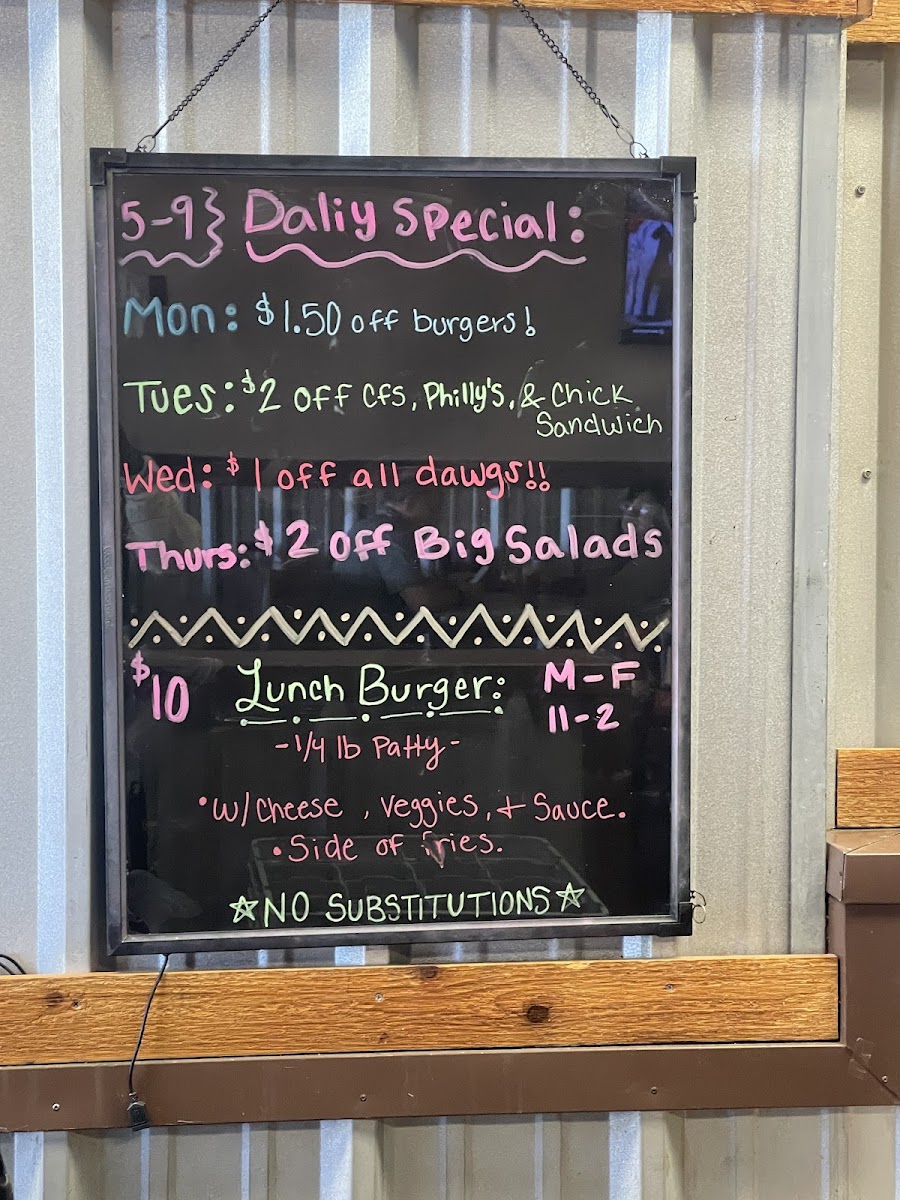 5-9} Daliy Special:
Mon: $1.50 off burgers!
Tues: $2 off Cfs, Philly's, & Chick
Sandwich
Wed: $1 off all dawgs!!
Thurs: $2 off Big Salads
$10 Lunch Burger: M-F
11-2
-1/4 lb Patty-
•w/ Cheese, Veggies, + Sauce.
•Side of fries.
☆NO SUBSTITUTIONS☆